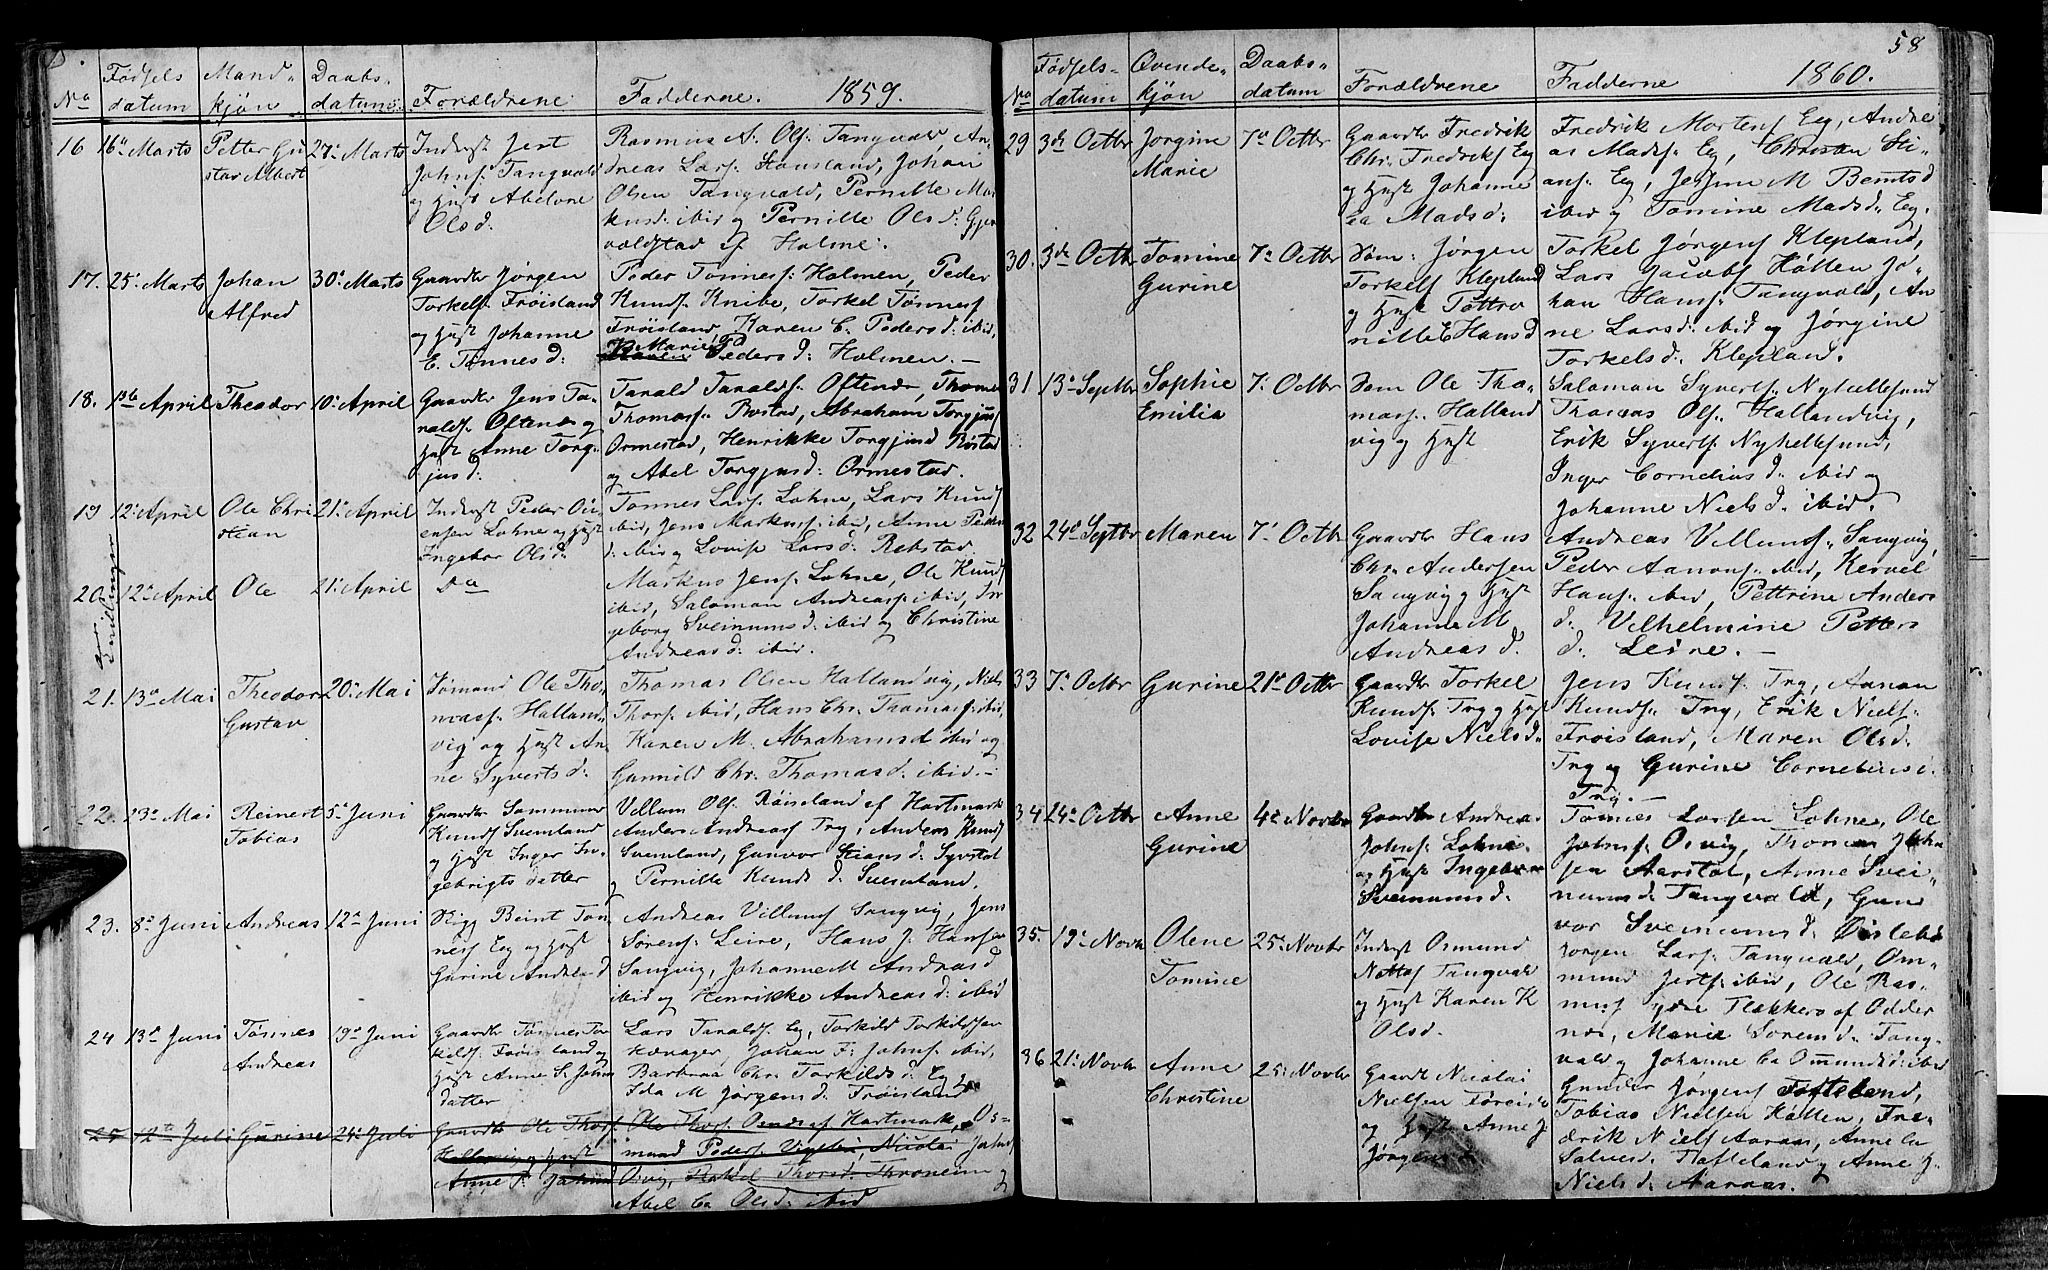 No
Fødsels
datum
Mand-
kjøn
Daabs-
datum
Forældrene
Fadderne. 1859.
16 16de Marts Petter Gu
stav Albert 27de Marts
Indrst Jest
Johns. Tangvald
og Hust Abelone
Olsd.
Rasmus N. Ols. Tangvald, An-
dreas Lars. Housland, Johan
Olsen Tangvald, Pernille Mar
kusd. ibid og Pernille Ols d.
valdstad af Holme.
17. 25. Marts Johan
Alfred 30. Marts
Gaardbr Jørgen
Torkels. Frøisland
og Hust Johanne
E. Tønnes d.
Peder Tønnes. Holmen, Peder
Knuds. Knibe, Torkel Tønnes
Frøisland, Karen C. Peders d. ibid,
Marie
Peders d. Holmen. —
18. 1ste April Theodor 10. April
Gaardbr Jens Ta-
ralds. Oftenes og
Hust Anne Torg-
jus d.
Tarald Taralds. Oftenes, Thomas
Thomas. Bøstad, Abraham Torgjus
Ormestad, Henrikke Torgjusd Bøstad
og Abel Torgjus d. Ormestad.
19 12. April Ole Chri
stian 21. April
Indrst Peder
Lohne og Hust
Ingebor Ols d.
Tønnes Lars. Lohne, Lars Knuds
ibid, Jens Markus. ibid, Anne Peders
d. ibid og Lovise Lars d. Rebstad.
20. 12te April Ole 21. April
do
Markus Jens. Lohne, Ole Knuds
ibid, Salomon Andreas. ibid, In
geborg Sveinums d. ibid og Christine
Andreas d. ibid.
Tvillinger
21. 13de Mai Theodor
Gustav 20. Mai
Sømand Ole Tho-
mass. Halland-
vig og Hust An-
ne Syverts d.
Thomas Olsen Hallandvig, Niels
Thors. ibid, Hans Chr. Thomas. ibid,
Karen M. Abrahamsd ibid og
Gunnild Chr. Thomas d. ibid. —
22. 23de Mai Reinert
Tobias 5te Juni
Gaardbr
Knuds Svenland
og Hust Inger In-
gebrigts datter
Villum Ols. Røiseland af Hartmark
Anders Andreas. Try, Anders Knuds
Svenland, Gunvor Stians d. Syvstøl
og Pernille Knuds d. Svenland.
23. 8de Juni Andreas 12te Juni
Rigg Beint Tøn-
nes. Eeg og Hust
Gurine Andreas d
Andreas Villums Sangvig, Jens
Sørens. Leire, Hans J. Hansen
Sangvig, Johanne M Andreas d
ibid og Henrikke Andreas d. ibid
24 13de Juni Tønnes
Andreas 19de Juni
Gaardbr Tønnes Tor
kilds. Frøisland og
Hust Anne S. Johns
datter
Lars Taralds. Eeg, Torkild Torkildsen
Johan F. Johns. ibid,
Barbroa Chr. Torkilds d. Eeg
Ida M Jørgens d. Frøisland
25 12te Juli Gurine 24de Juli
Gaardbr Ole Thors.
og Hust
Anne
Ole Thors. Hartmark, Os-
mund Peders. Nicolai Johns
Oivig, Rakel Thors d. Throneim og
Abel Ca Ols d. ibid
58
No
Fødsels-
datum
Qvinde-
kjøn
Daabs-
datum
Forældrene
Fadderne 1860.
29 3de Octbr Jorgine
Marie 7de Octbr
Gaardbr Fredrik
Chr. Fredriks Eeg
og Hust Johanne
Ca Mads d.
Fredrik Mortens Eeg, Andre
as Mads. Eeg, Christen Sti-
ans. Eeg, M Bentsd
ibid og Tomine Mads d. Eeg.
30. 3de Octbr Tomine
Gurine 7de Octbr
Søm. Jørgen
Torkels Klepland
og Hust Pettro
nille E Hans d
Torkel Jørgens Klepland,
Lars Jacobs Høllen Jo-
han Hans. Tangvald, An
ne Lars d. ibid og Jørgine
Torkels d. Klepland.
31 13de Septbr Sophie
Emilia 7. Octbr
Søm Ole Tho-
mas. Halland
vig og Hust
Salomon Syverts. Nyhellesund
Thomas Ols. Hallandvig,
Erik Syverts. Nyhellesund,
Inger Cornelius d. ibid og
Johanne Niels d. ibid.
32 24de Septbr Maren 7. Octbr
Gaardbr Hans
Chr. Andersen
Sangvig og Hust
Johanne M
Andreas d.
Andreas Villums. Sangvig,
Peder Aanons. ibid, Kervel
Hans. ibid, Pettrine Anders
d. Vilhelmine Petters
d. Leire. —
33 7. Octbr Gurine 21de Octbr
Gaardbr Torkel
Knuds. Try og Hust
Lovise Niels d.
Jens Knuds. Try, Aanon
Knuds. Try, Erik Niels.
Frøisland, Maren Ols d.
Try og Gurine Cornelius d.
Try. —
34 24de Octbr Anne
Gurine 4de Novbr
Gaardbr Andreas
Johns. Lohne
og Hust Ingeborg
Sveinums d.
Tønnes Larsen Lohne, Ole
Johns. Oivig, Thomas Joh
sen Aarstøl, Anne Svei-
nums d. Tangvald, Gun
vor Sveinums d.
35. 19. Novbr Olene
Tomine 25de Novbr
Indrst Osmund
Tangvald
og Hust Karen K
Ols d.
Jørgen Lars. Tangvald, Om-
mund Jests. ibid, Ole Ras-
mus. ydre Flekkerø af Odder
nes, Marie Sørens d. Tang-
vald og Johanne Ca Omunds d. ibid
36 21. Novbr Anne
Christine 25. Novbr
Gaardbr Nicolai
Nielsen
og Hust Anne J
Jørgens d.
Gunder Jørgens Tofteland,
Tobias Nielsen Høllen, Fre
drik Niels Aaraas, Anne Ca
Salves d. Tofteland og Anne J.
Niels d. Aaraas.